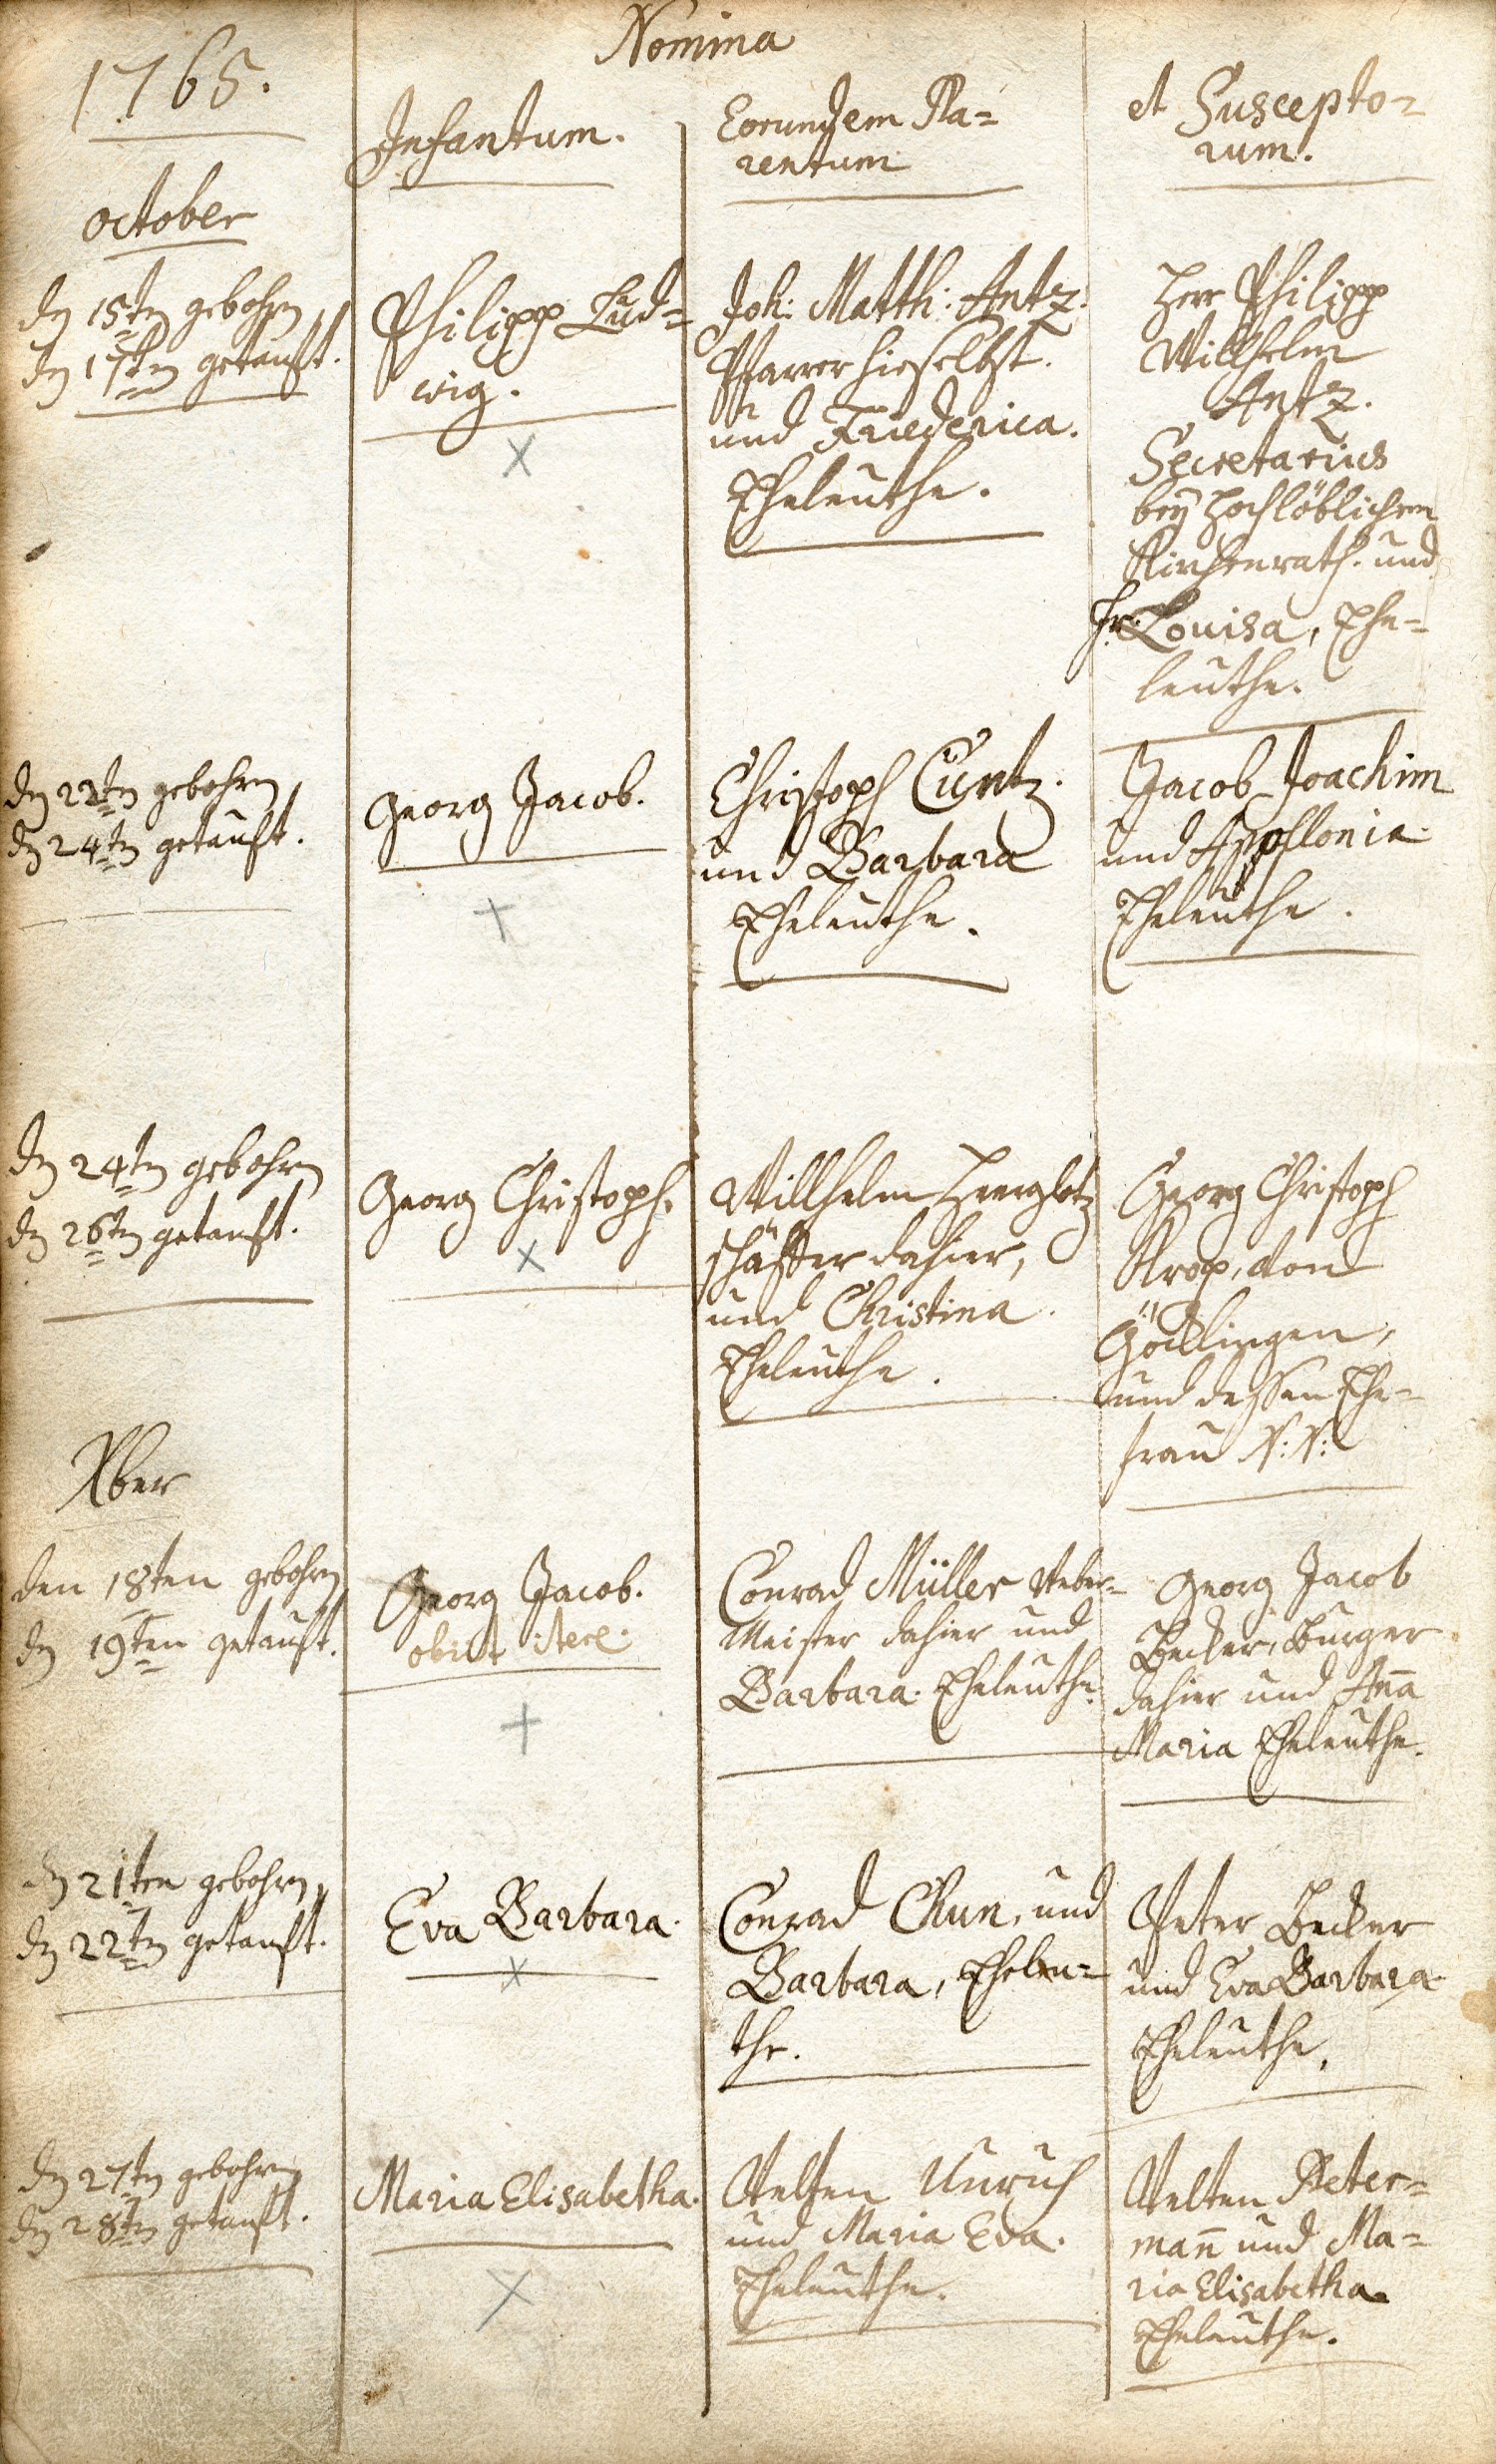 Nomina
1765.
Infantum.
Eorundem Pa=
rentum
et Suscepto=
rum.
october
den 15ten gebohren,
den 17ten getauft.
Philipp Lud=
wig.
Joh: Matth: Antz.
Pfarrer hieselbst.
und Friederica.
Eheleuthe.
Herr Philipp
Willhelm
Antz.
Secretarius
bey Hochlöblichem
Kirchenrath. und
fr. Louisa, Ehe=
leuthe.
den 22ten gebohren,
den 24ten getauft.
Georg Jacob.
Christoph Cuntz.
und Barbara
Eheleuthe.
Jacob Joachim
und Appollonia
Eheleuthe.
den 24ten gebohren
den 26ten getauft.
Georg Christoph.
Willhelm
schäffer dahier,
und Christina.
Eheleuthe.
Georg Christoph
Krop, von
Göcklingen,
und dessen Ehe=
frau N: N:
Xber
den 18ten gebohren
den 19ten getauft.
Georg Jacob.
obiit
Conrad Müller Weber=
Meister dahier und
Barbara. Eheleuthe.
Georg Jacob
Becker, Burger
dahier und Ana
Maria Eheleuthe.
den 21ten gebohren,
den 22ten getauft.
Eva Barbara.
Conrad Chun, und
Barbara, Eheleu=
the.
Peter Becker
und Eva Barbara.
Eheleuthe.
den 27ten gebohren
den 28ten getauft.
Maria Elisabetha.
Velten Unruh
und Maria Eva.
Eheleuthe.
Velten Peter=
man und Ma=
ria Elisabetha
Eheleuthe.